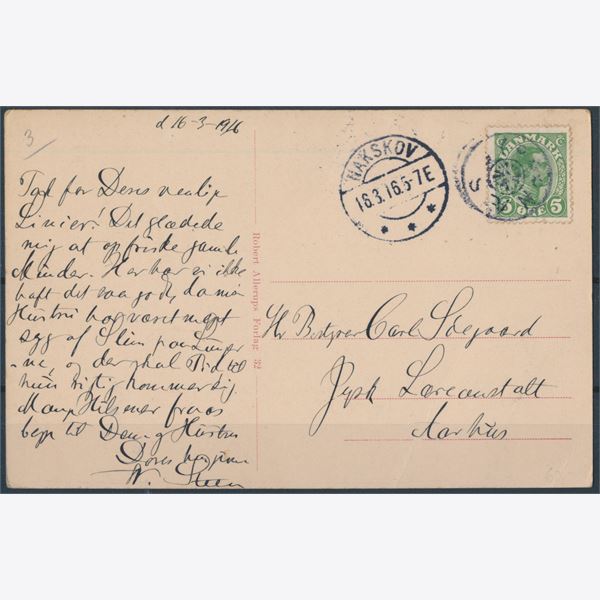 3
d 16-3-1916
Tak for Deres venlige
Linier! Det glædede
mig at opfriske gamle
Minder. Her har vi ikke
haft det saa godt, da min
Hustru har været meget
syg af Slim paa Lunger-
ne, og der skal Tid til
hun rigtig kommer sig.
Mange Hilsener fra os
begge til Dem og Hustru
Deres hengivne
V. Steen
Robert Allerups Forlag 32
NAKSKOV
16.3.16.5-7E
DANMARK
5 ØRE 5
Hr Bestyrer Carl Søegaard
Jysk Læreanstalt
Aarhus